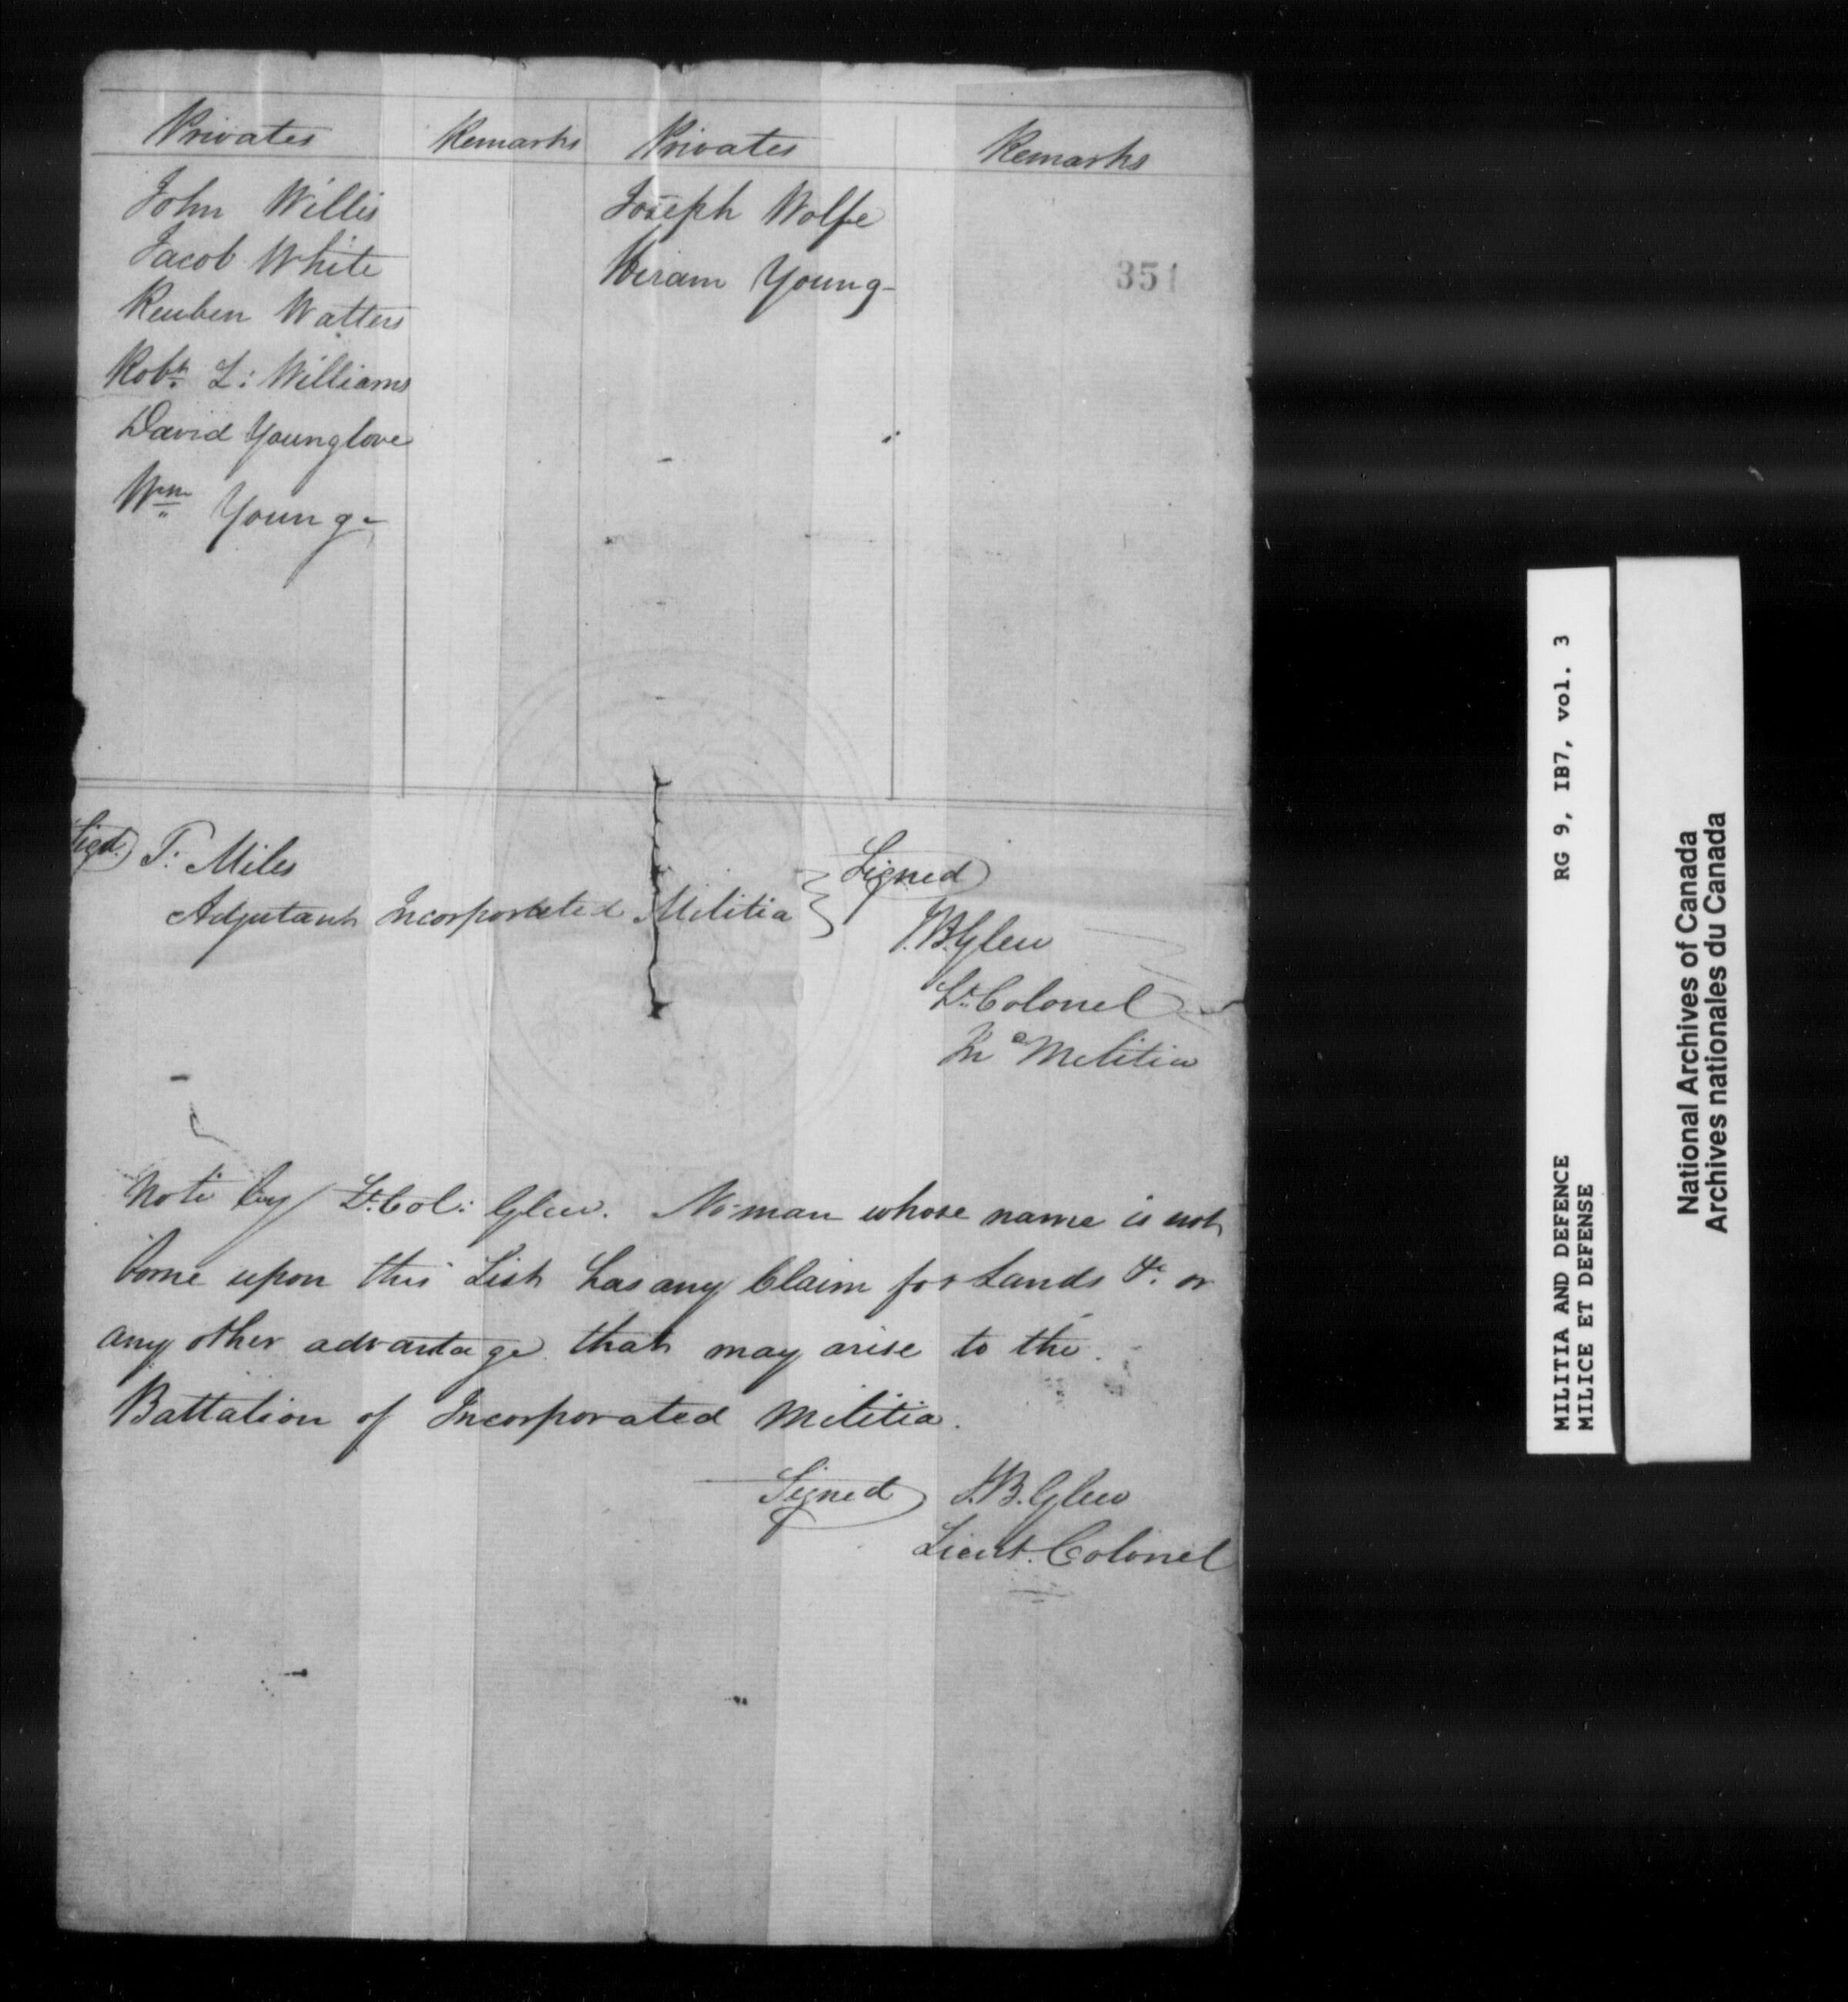 Privates Remarks Privates Remarks
John Willis Joseph Wolfe
Jacob White Hiram Young
351
Reuben Watters
Robt. L: Williams
David Younglove
Wm Young
Sigd.) T: Miles
Adjutant Incorporated Militia
Signed)
J.B. Glew
Lt. Colonel
In c Militia
Note by Lt. Col: Glew. No man whose name is not
borne upon this List has any Claim for Lands &c or
any other advantage that may arise to the
Battalion of Incorporated Militia.
Signed) J.B. Glew
Lieut. Colonel
MILITIA AND DEFENCE RG 9, IB7, vol. 3
MILICE ET DEFENSE
National Archives of Canada
Archives nationales du Canada